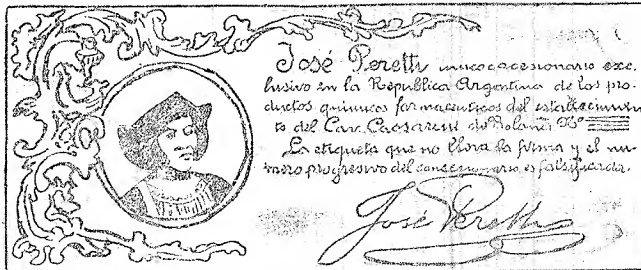 José Peretti unico cesionario exc-
lusivo en la República Argentina de los pro-
ductos quimicos farmaceuticos del establecimien-
to del Cav. de Nº
La etiqueta que no lleva la firma y el nu-
mero progresivo del concesionario es falsificada.
José Peretti